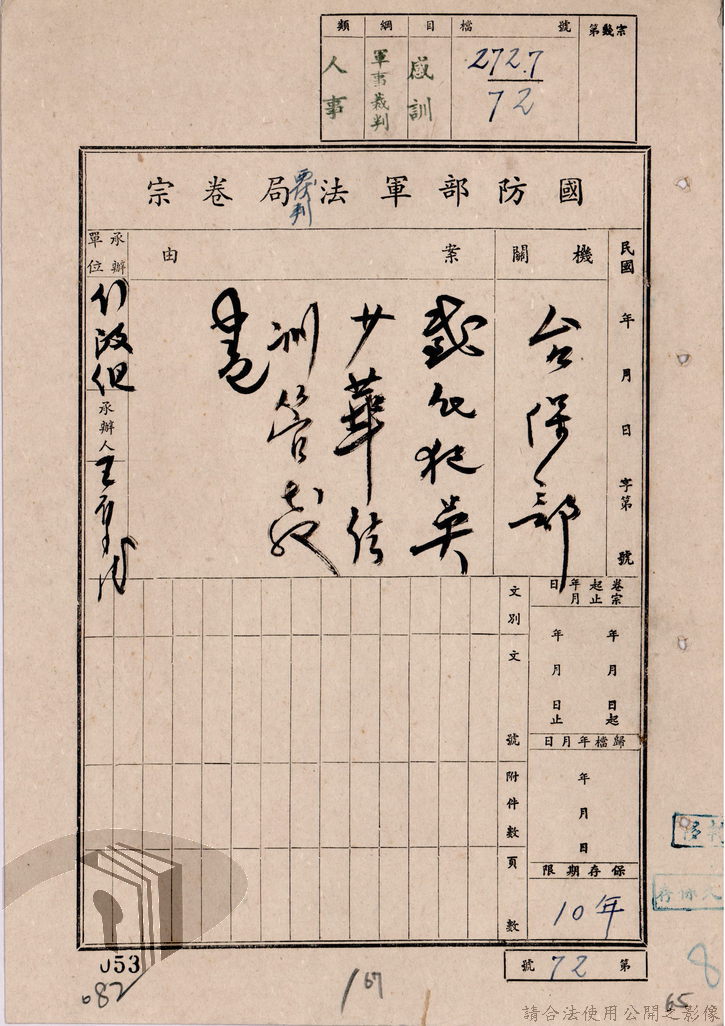 宗數第
檔 號
272.7
72
目
感訓
綱
軍事裁判
類
人事
國防部軍法局卷宗
覆判
民國 年 月 日 字第 號
機關
台保部
案由
叛亂犯吳
廿華
訓管教
卷
承辦單位
行政組
承辦人
卷宗起止年月日
年 月 日起
年 月 日止
歸檔年月日
年 月 日
保存期限
10年
文別
文 號
附件數
頁數
第 72 號
053
082
1
67
65
8
請合法使用公開之影像